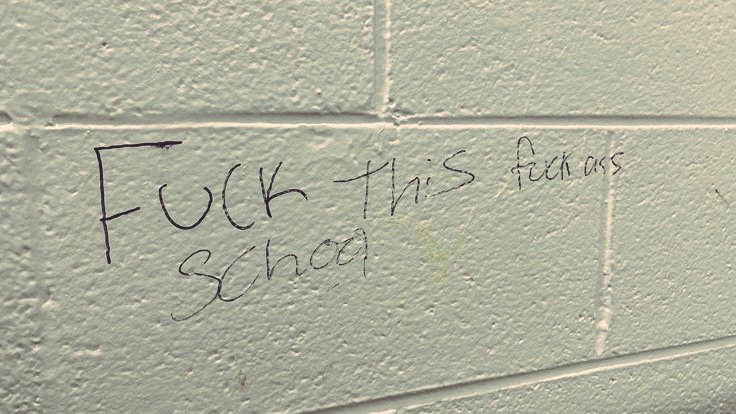 FUCK THiS fuck ass
School